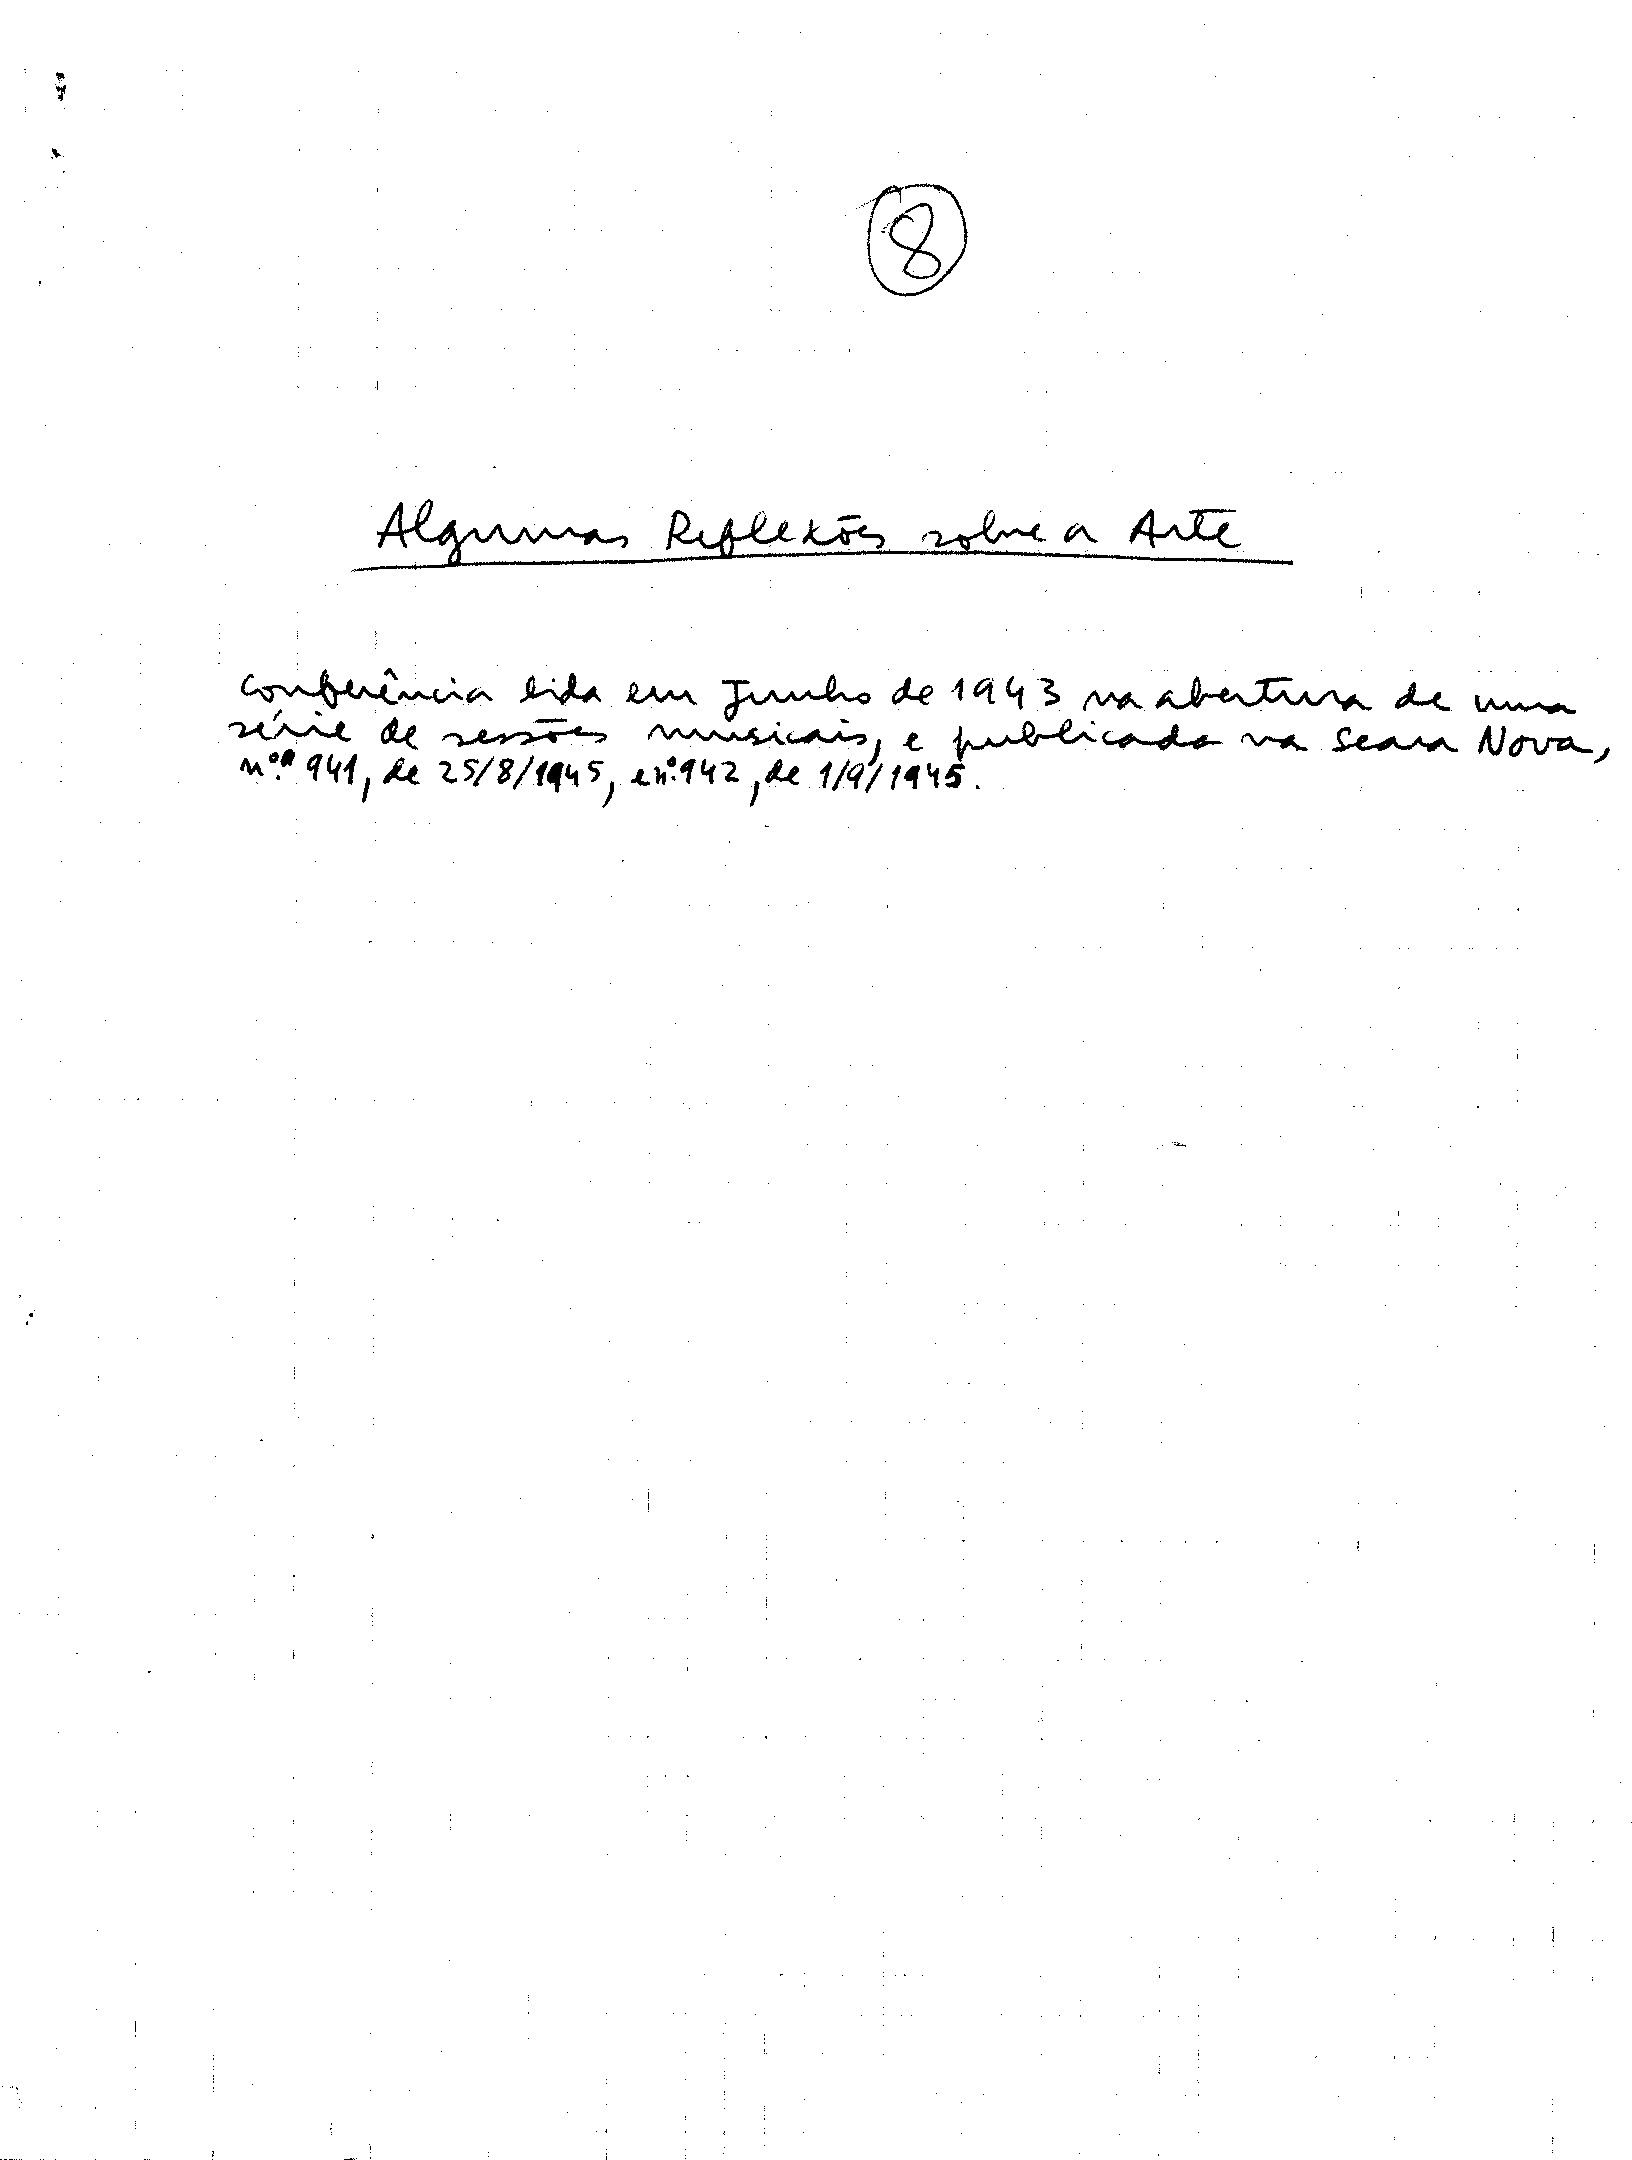 8
Algumas Reflexões sobre a Arte
Conferência lida em Junho de 1943 na abertura de uma
série de sessões musicais, e publicada na Seara Nova,
n.º 941, de 25/8/1945, e n.º 942, de 1/9/1945.